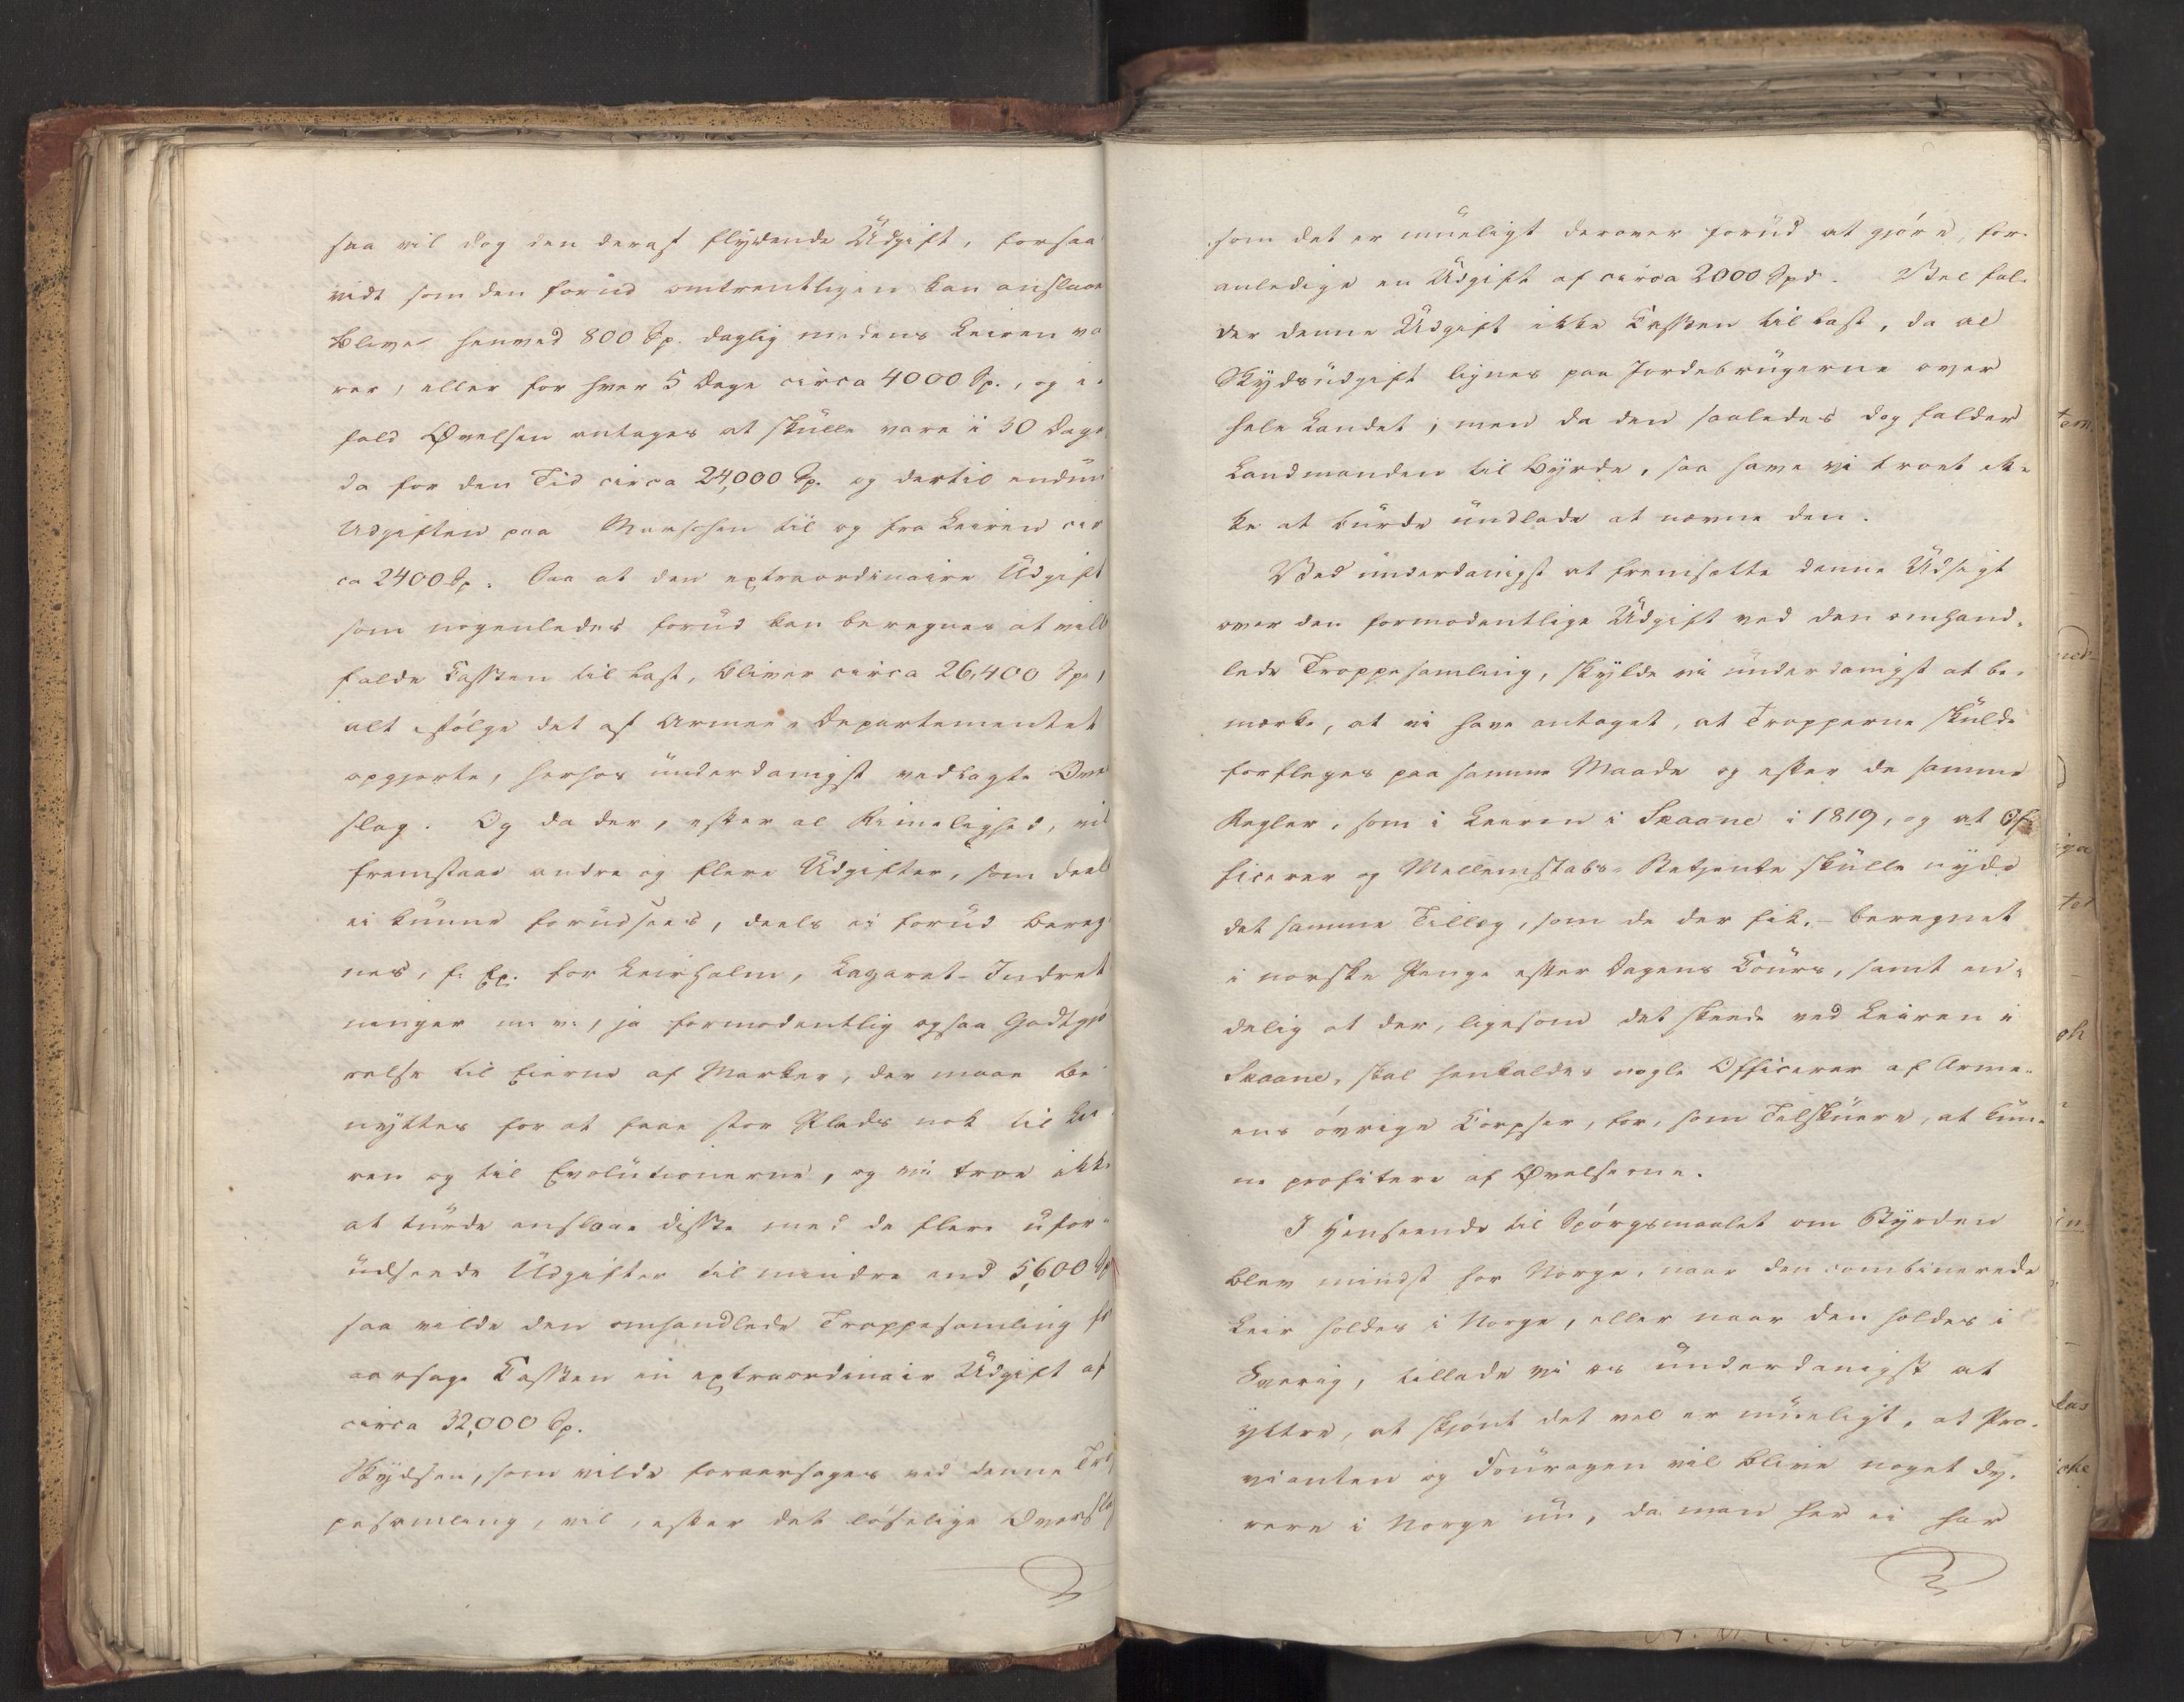 saa vil dog den deraf flydende Udgift, forsaa
vidt som den forud omtrentligen kan anslaae
blive henved 800 Sp. daglig medens Leiren va
rer, eller for hver 5 Dage circa 4000 Sp., og i
fald Øvelsen antages at skulle vare i 30 Dage
da for den Tid circa 24,000 Sp. og dertil endnu
Udgiften paa Marschen til og fra Leiren cir
ca 2400 Sp. Saa at den extraordinaire Udgift
som nogenledes forud kan beregnes at ville
falde Cassen til Last, bliver circa 26,400 Sp.,
alt ifølge det af Armee-Departementet
opgjorte, herhos underdanigst vedlagte Over
slag. Og da der, efter al Rimelighed, vil
fremstaae andre og flere Udgifter, som deels
ei kunne forudsees, deels ei forud bereg
nes, f. Ex. for Leirhalm, Lazaret-Indret
ninger m. v., ja formodentlig ogsaa Godtgjø
relse til Eierne af Marker, der maae be
nyttes for at faae stor Plads nok til Lei
ren og til Evolutionerne, og vi troe ikke
at turde anslaae disse med de flere ufor-
udseede Udgifter til mindre end 5,600 Sp
saa vilde den omhandlede Troppesamling for
aarsage Cassen en extraordinair Udgift af
circa 32,000 Sp.
Skydsen, som vilde foraarsages ved denne Trop
pesamling, vil, efter det løselige Overslag
som det er mueligt derover forud at gjøre, for-
anledige en Udgift af circa 2000 Spd. Vel fal-
der denne Udgift ikke Cassen til Last, da al
Skydsudgift lignes paa Jordebrugerne over
hele Landet; men da den saaledes dog falder
Landmanden til Byrde, saa have vi troet ik-
ke at burde undlade at nævne den.
Ved underdanigst at fremsætte denne Udsigt
over den formodentlige Udgift ved den omhand-
lede Troppesamling, skylde vi underdanigst at be-
mærke, at vi have antaget, at Tropperne skulde
forpleges paa samme Maade og efter de samme
Regler, som i Leiren i Skaane i 1819, og at Of-
ficerer og Mellemstabs-Betjente skulle nyde
det samme Tillæg, som de der fik, - beregnet
i norske Penge efter Dagens Cours, samt en-
delig at der, ligesom det skeede ved Leiren i
Skaane, skal henkaldes nogle Officerer af Arme-
ens øvrige Corpser, for, som Tilskuere, at kun-
ne profitere af Øvelserne.
I Henseende til Spørgsmaalet om Byrden
blev mindst for Norge, naar den combinerede
Leir holdes i Norge, eller naar den holdes i
Sverig, tillade vi os underdanigst at
yttre, at skjønt det vel er mueligt, at Pro-
vianten og Fouragen vil blive noget dy-
rere i Norge nu, da man her ei har